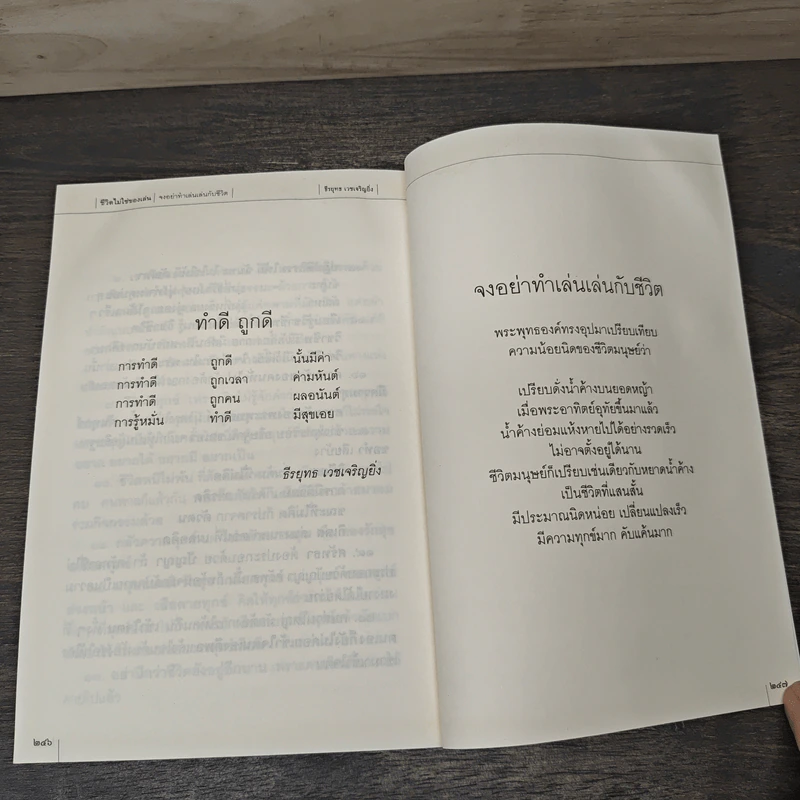 ชีวิตไม่ใช่ของเล่น | จงอย่าทำเล่นเล่นกับชีวิต | ธีรยุทธ เวชเจริญยิ่ง
ทำดี ถูกดี
การทำดี ถูกดี นั้นมีค่า
การทำดี ถูกเวลา ค่ามหันต์
การทำดี ถูกคน ผลอนันต์
การรู้หมั่น ทำดี มีสุขเอย
ธีรยุทธ เวชเจริญยิ่ง
๒๔๖
จงอย่าทำเล่นเล่นกับชีวิต
พระพุทธองค์ทรงอุปมาเปรียบเทียบ
ความน้อยนิดของชีวิตมนุษย์ว่า
เปรียบดั่งน้ำค้างบนยอดหญ้า
เมื่อพระอาทิตย์อุทัยขึ้นมาแล้ว
น้ำค้างย่อมแห้งหายไปได้อย่างรวดเร็ว
ไม่อาจตั้งอยู่ได้นาน
ชีวิตมนุษย์ก็เปรียบเช่นเดียวกับหยาดน้ำค้าง
เป็นชีวิตที่แสนสั้น
มีประมาณนิดหน่อย เปลี่ยนแปลงเร็ว
มีความทุกข์มาก คับแค้นมาก
๒๔๗